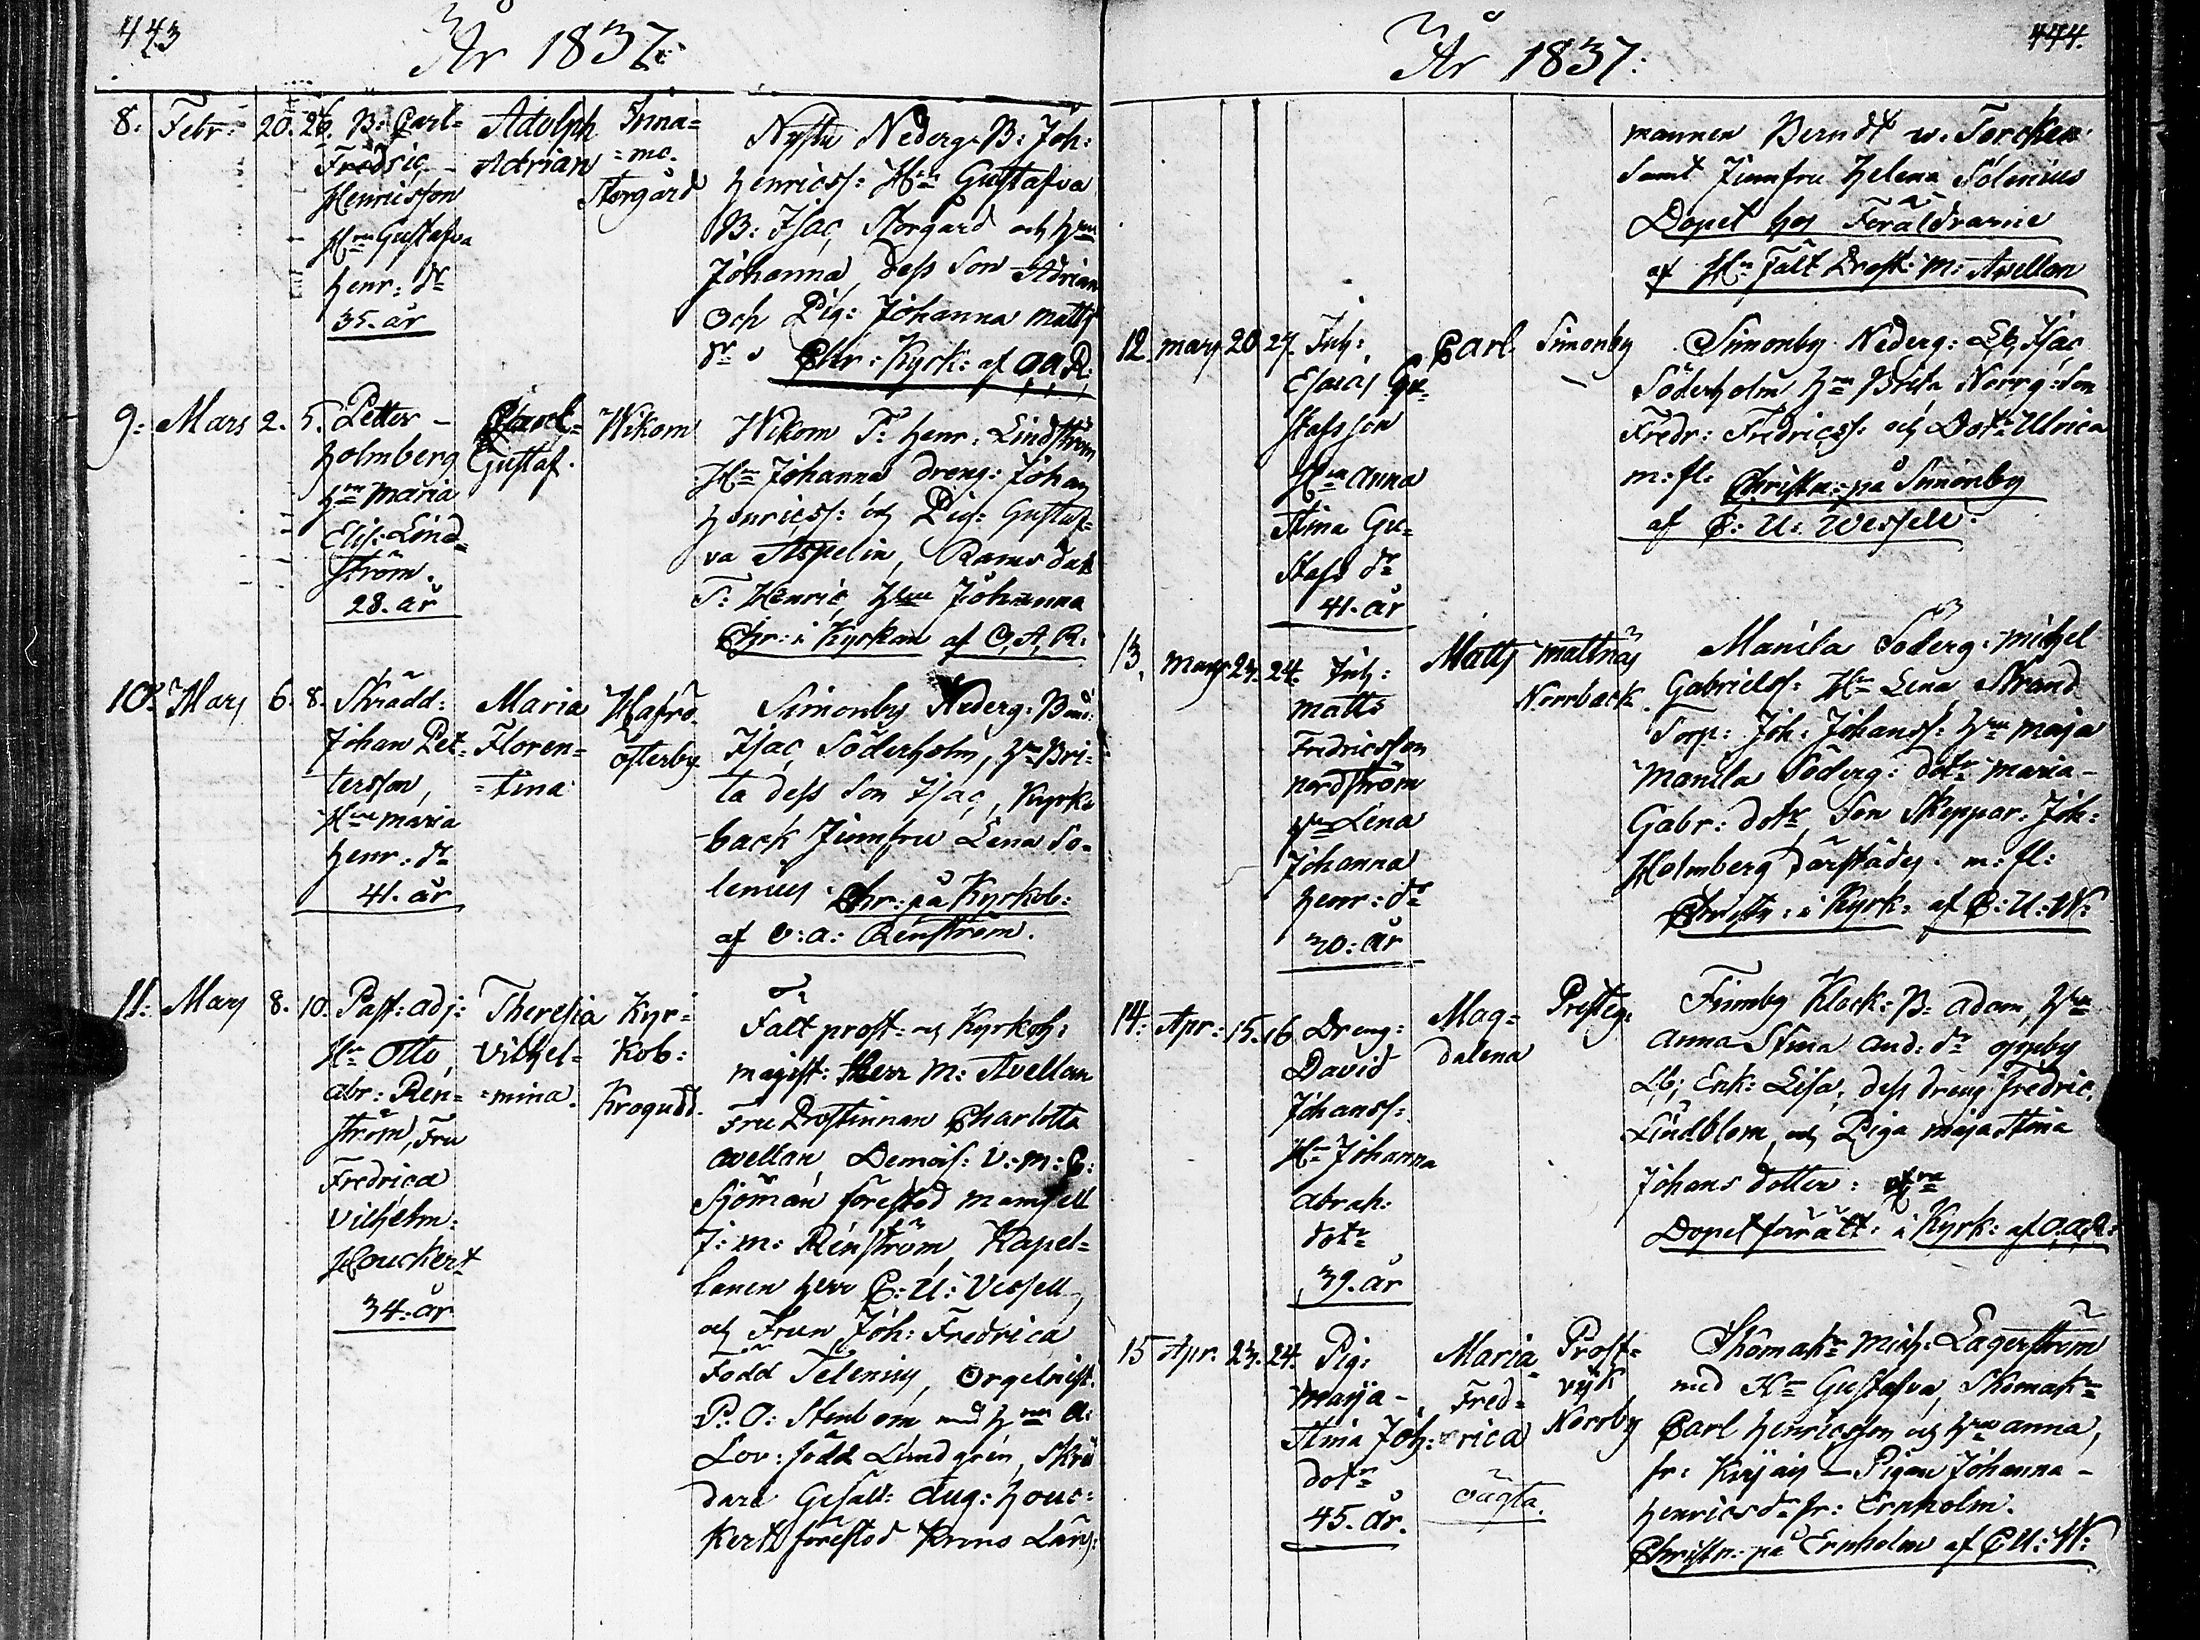 443
År 1837:
8: Febr: 20. 26. B: Carl=
Fredric
Henricsson
H:m Gustafva
Henr: dr
35. år
Adolph
Adrian
Inna=
=mo.
Storgård
Nederg. B: Joh:
Henricss: H:m Gustafva
B: Isac Storgard och H:m
Johanna, dess Son Adrian
och Pig: Johanna Matts
dr Chr: Kyrk: af O A R:
9: Mars 2. 5. Petter
Holmberg
H:m Maria
Elis: Lind=
ström.
28. år
Carl=
Gustaf.
Wikom
Wikom T: Henr: Lindström
H:m Johanna dreng: Johan
Henricss: och Pig: Gustaf=
va Aspelin, Ramsdahl
T: Henric, H:m Johanna
Chr: i Kyrkan af O, A, R:
10: Mars 6. 8. Skrädd:
Johan Pet=
tersson,
H:m Maria
Henr: dr
41. år
Maria
Floren=
=tina
Hafrö
österby
Simonby Nederg: Bond:
Isac Söderholm, H:m Bri=
ta dess Son Isac, Kyrko
back Jumfru Lena So=
lenius. Chr: på Kyrkob:
af O: A: Renström.
11: Mars 8. 10. Past: adj:
H:r Otto
Abr: Ren=
ström, Fru
Fredrica
Vilhelm:
Houckert
34. år
Theresia
Vilhel=
=mina.
Kyr=
Kob:
Krogudd.
Fält prost: och Kyrkoh:
magist: Herr M: Avellan
Fru Prostinnan Charlotta
Avellan, Demois: V: M: C:
Sjöman förestod Mamsell
J: M: Renström, Kapel=
lanen Herr C: U: Vessell
och Frun Joh: Fredrica
Född Telenius, Orgelnist.
P: O: Stenbom med H:m A:
Lov: född Lindgren, Skräd
dare Gesäll: Aug: Houc=
Kert förestod Krono Län:
444.
År 1837:
mannen Berndt w. Torcken
Samt Jumfru Helena Solenius
Dopet hos Föräldrarne
af H:r Fält Prost: M: Avellan
12. Mars 20. 27. Inh:
Esaias Gu=
stafsson
H:m Anna
Stina Gu=
stafs dr
41. år
Carl. Simonby
Simonby Nederg: Lb, Isac
Söderholm H:m Brita Norrg: Son
Fredr: Fredricss: och Dotr Ulrica
m: fl: Christn: på Simonby
af C: U: Wessell.
13. Mars 23. 24. Inh:
Matts
Fredricsson
Nordström
H:m Lena
Johanna
Henr: dr
30: år
Matts Mattnäs
Norrback.
Manila Söderg: Michel
Gabrielss: H:m Lena Strand
Torp: Joh: Johanss: H:m Maja
Manila Söderg: dotr Maria
Gabr: dotr, Son Skeppar: Joh:
Holmberg därstädes. m: fl:
Christn: i Kyrk: af C: U: W:
14: Apr: 15. 16. Dreng:
David
Johanss:
H:m Johanna
Abrah:
dotr
39. år
Mag=
dalena
Presteg:
Finnby Klock: B: Adam, H:m
Anna Stina And: dr
Lb: Enk: Lisa, dess dreng Fredric
Lindblom, och Piga Maja Stina
Johans dotter:
Dopet förrätt: i Kyrk: af O: A: R:
15 Apr: 23. 24. Pig:
Maija
Stina Joh:
dotr
45. år.
Maria
Fred=
=rica
oägta.
Prost=
vijk
Norrby
Skomakr Mich: Lagerström
med H:m Gustafva, Skomakr
Carl Henricsson och H:m Anna,
fr: Pigan Johanna
Henricsdr fr: Ernholm.
Christn: på Ernholm af C U: W: